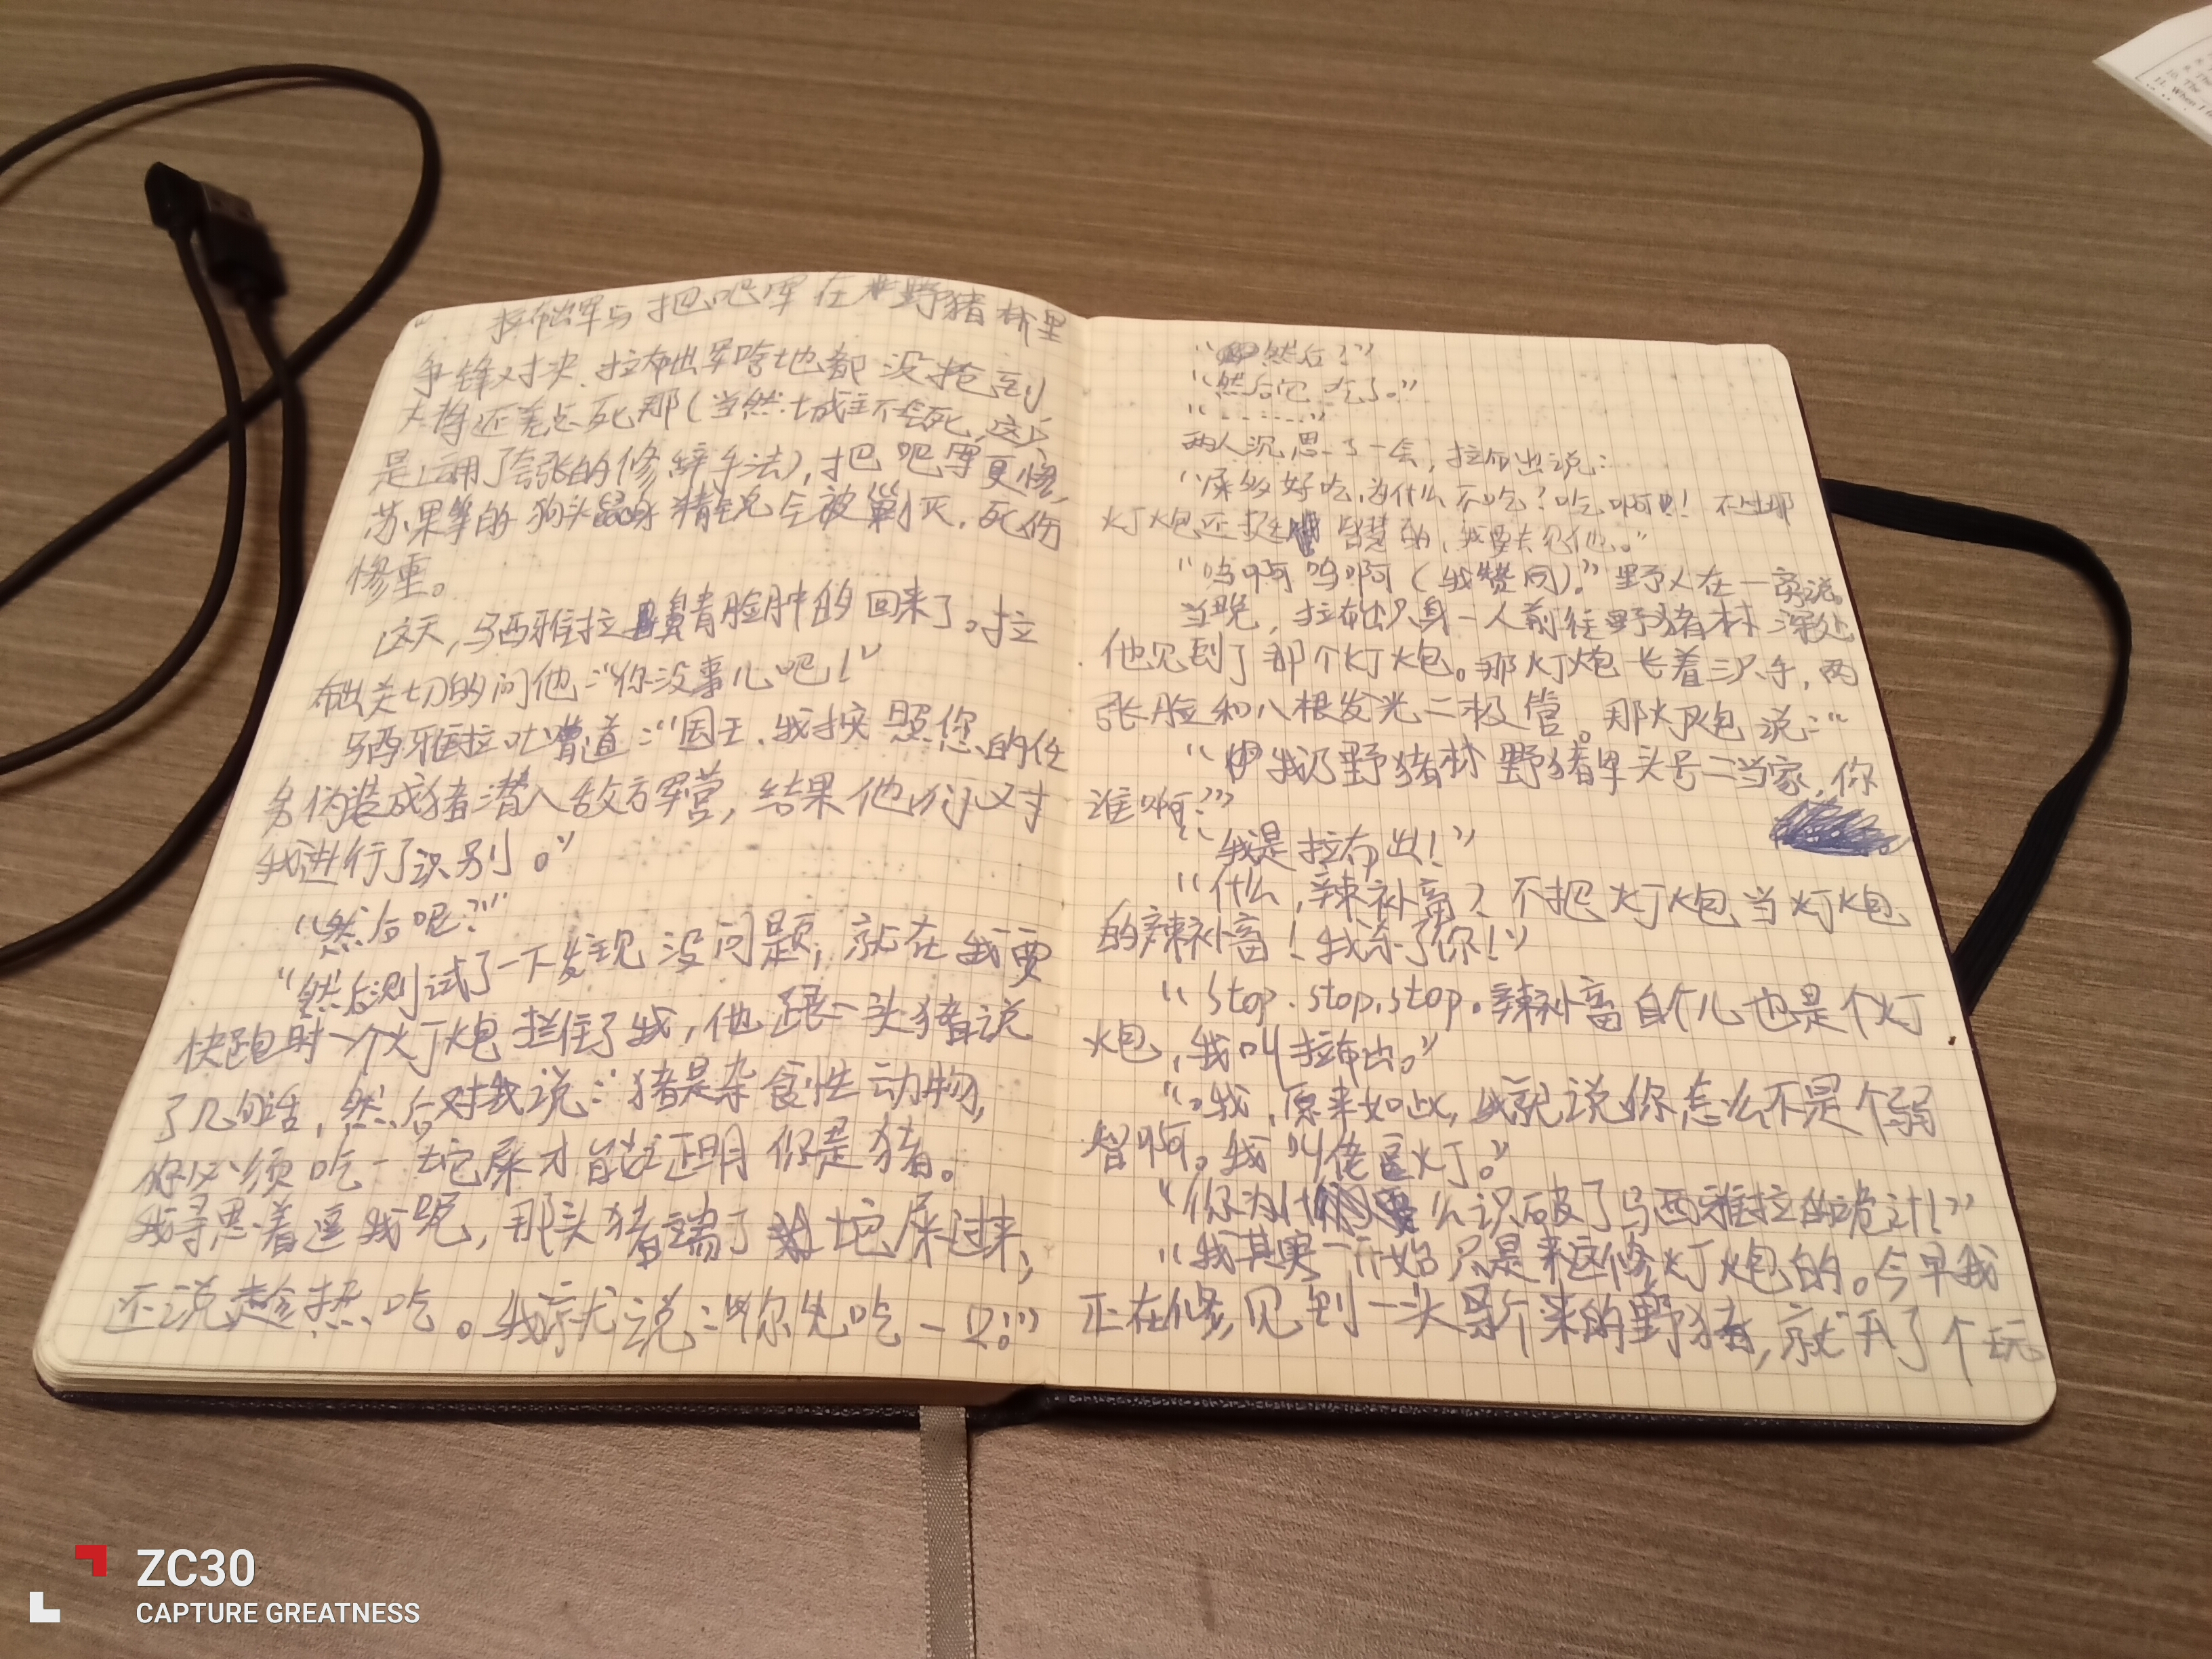 拉布出军与把吧军在野猪林里
争锋对决.拉布出军啥地都没抢到
大将还差点死那(当然城主不会死,这
是运用了夸张的修辞手法),把吧军更惨,
苏果等的狗头精锐全被剿灭.死伤
惨重。
这天,马西雅拉鼻青脸肿的回来了。拉
布出关切的问他:“你没事儿吧!”
马西雅拉吐嘈道:“国王.我按照您的任
务伪装成猪潜入敌方军营,结果他们对
我进行了识别。”
“然后呢?”
“然后测试了一下发现没问题,就在我要
快跑时一个灯炮拦住了我,他跟一头猪说
了几句话,然后对我说:“猪是杂食性动物,
你必须吃一坨屎才能证明你是猪。
我寻思着逗我呢,那头猪端了坨屎过来,
还说趁热吃。我就说:“你先吃一口。”
“然后?”
“然后它吃了。”
“......”
两人沉思了一会,拉布出说:
“屎多好吃,为什么不吃?吃啊!不过那
灯炮还挺智慧的,我要去见他。”
“呜啊呜啊(我赞同)。”野人在一旁说。
当晚,拉布出只身一人前往野猪林深处
他见到了那个灯炮。那灯炮长着三只手,两
张脸和八根发光二极管。那灯炮说:“
“我乃野猪林野猪军头号二当家,你
谁啊?”
“我是拉布出!”
“什么,辣补畜?不把灯炮当灯炮
的辣补畜!我杀了你!”
“stop.stop.stop。辣补畜自个儿也是个灯
炮,我叫拉布出。”
“我,原来如此,我就说你怎么不是个弱
智啊。我叫佬逗灯。”
“你为什么识破了马西雅拉的诡计!”
“我其实一开始只是来这修灯炮的。今早我
正在修,见到一头新来的野猪,就开了个玩
ZC30
CAPTURE GREATNESS